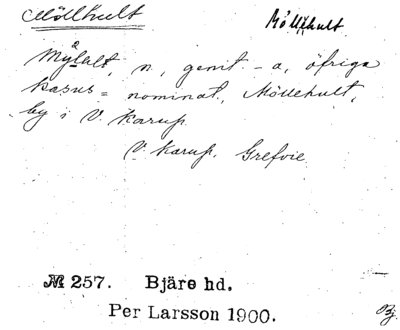 Möllhult Möllehult
Mylalt, n., genit -a, öfriga
kasus = nominat., Möllehult,
by i V. Karup.
V. Karup, Grefvie
№ 257. Bjäre hd.
Per Larsson 1900.
Bj.